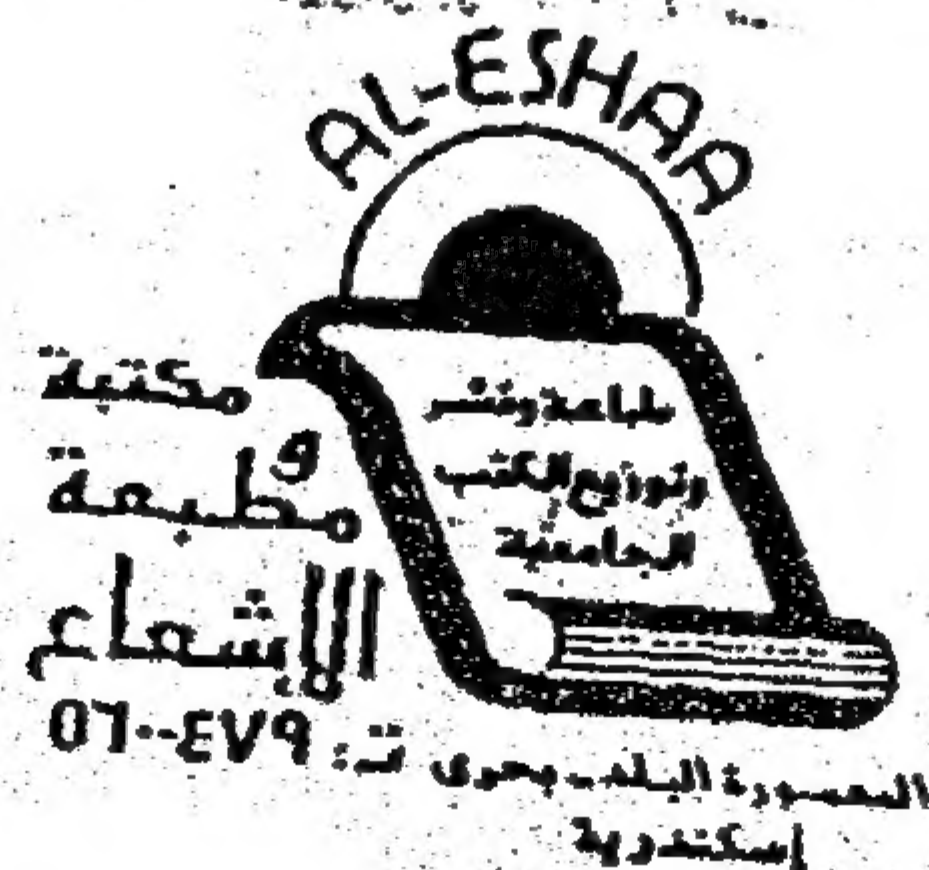 AL-ESHAA
مكتبة
و
مطبعة
الإشعاع
طباعة ونشر
وتوزيع الكتب
الجامعية
المعمورة البلد - بحرى ت: ٥٦٠٠٤٧٩
إسكندرية